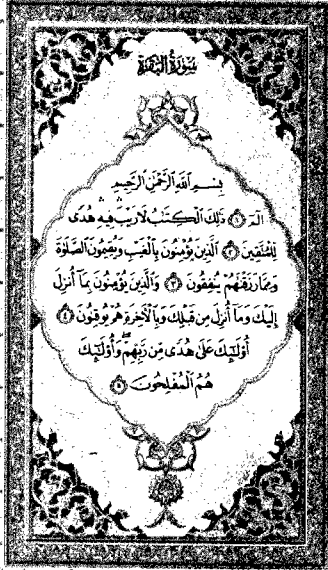 سُورَةُ الْبَقَرَةِ
بِسْمِ ٱللَّهِ ٱلرَّحْمَٰنِ ٱلرَّحِيمِ
الٓمٓ ۝١ ذَٰلِكَ ٱلْكِتَٰبُ لَا رَيْبَ ۛ فِيهِ ۛ هُدًى
لِّلْمُتَّقِينَ ۝٢ ٱلَّذِينَ يُؤْمِنُونَ بِٱلْغَيْبِ وَيُقِيمُونَ ٱلصَّلَوٰةَ
وَمِمَّا رَزَقْنَٰهُمْ يُنفِقُونَ ۝٣ وَٱلَّذِينَ يُؤْمِنُونَ بِمَآ أُنزِلَ
إِلَيْكَ وَمَآ أُنزِلَ مِن قَبْلِكَ وَبِٱلْءَاخِرَةِ هُمْ يُوقِنُونَ ۝٤
أُو۟لَٰٓئِكَ عَلَىٰ هُدًى مِّن رَّبِّهِمْ ۖ وَأُو۟لَٰٓئِكَ
هُمُ ٱلْمُفْلِحُونَ ۝٥